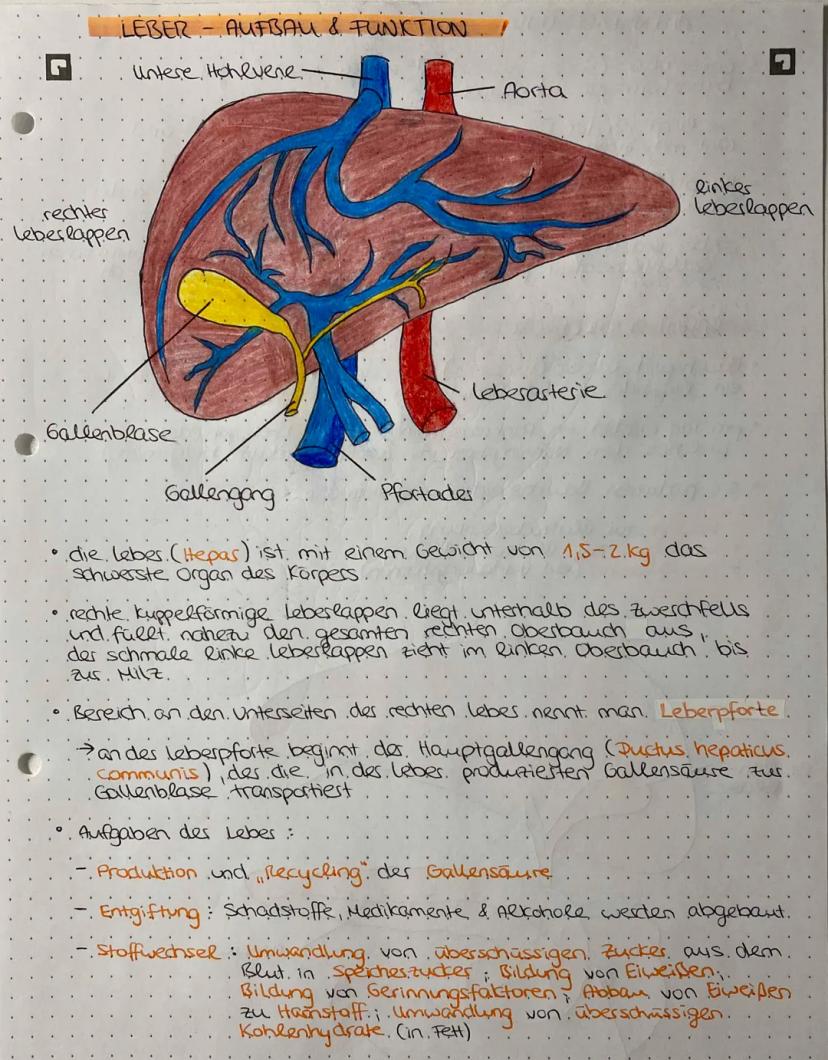 LEBER – AUFBAU & FUNKTION
untere Hohlvene
Aorta
rechter
Leberlappen
linker
Leberlappen
Leberarterie
Gallenblase
Gallengang
Pfortader
• die Leber (Hepar) ist mit einem Gewicht von 1,5-2 kg das
schwerste Organ des Körpers
• rechte kuppelförmige Leberlappen liegt unterhalb des Zwerchfells
und füllt nahezu den gesamten rechten Oberbauch aus,
der schmale linke Leberlappen zieht im linken Oberbauch bis
zur Milz.
• Bereich an den Unterseiten der rechten Leber nennt man Leberpforte
→ an der Leberpforte beginnt der Hauptgallengang (Ductus hepaticus
communis), der die in der Leber produzierten Gallensäure zur
Gallenblase transportiert
• Aufgaben der Leber:
- Produktion und „Recycling" der Gallensäure
- Entgiftung: Schadstoffe, Medikamente & Alkohole werden abgebaut.
- Stoffwechsel: Umwandlung von überschüssigen Zucker aus dem
Blut in Speicherzucker; Bildung von Eiweißen;
Bildung von Gerinnungsfaktoren; Abbau von Eiweißen
zu Harnstoff; Umwandlung von überschüssigen
Kohlenhydrate (in Fett)